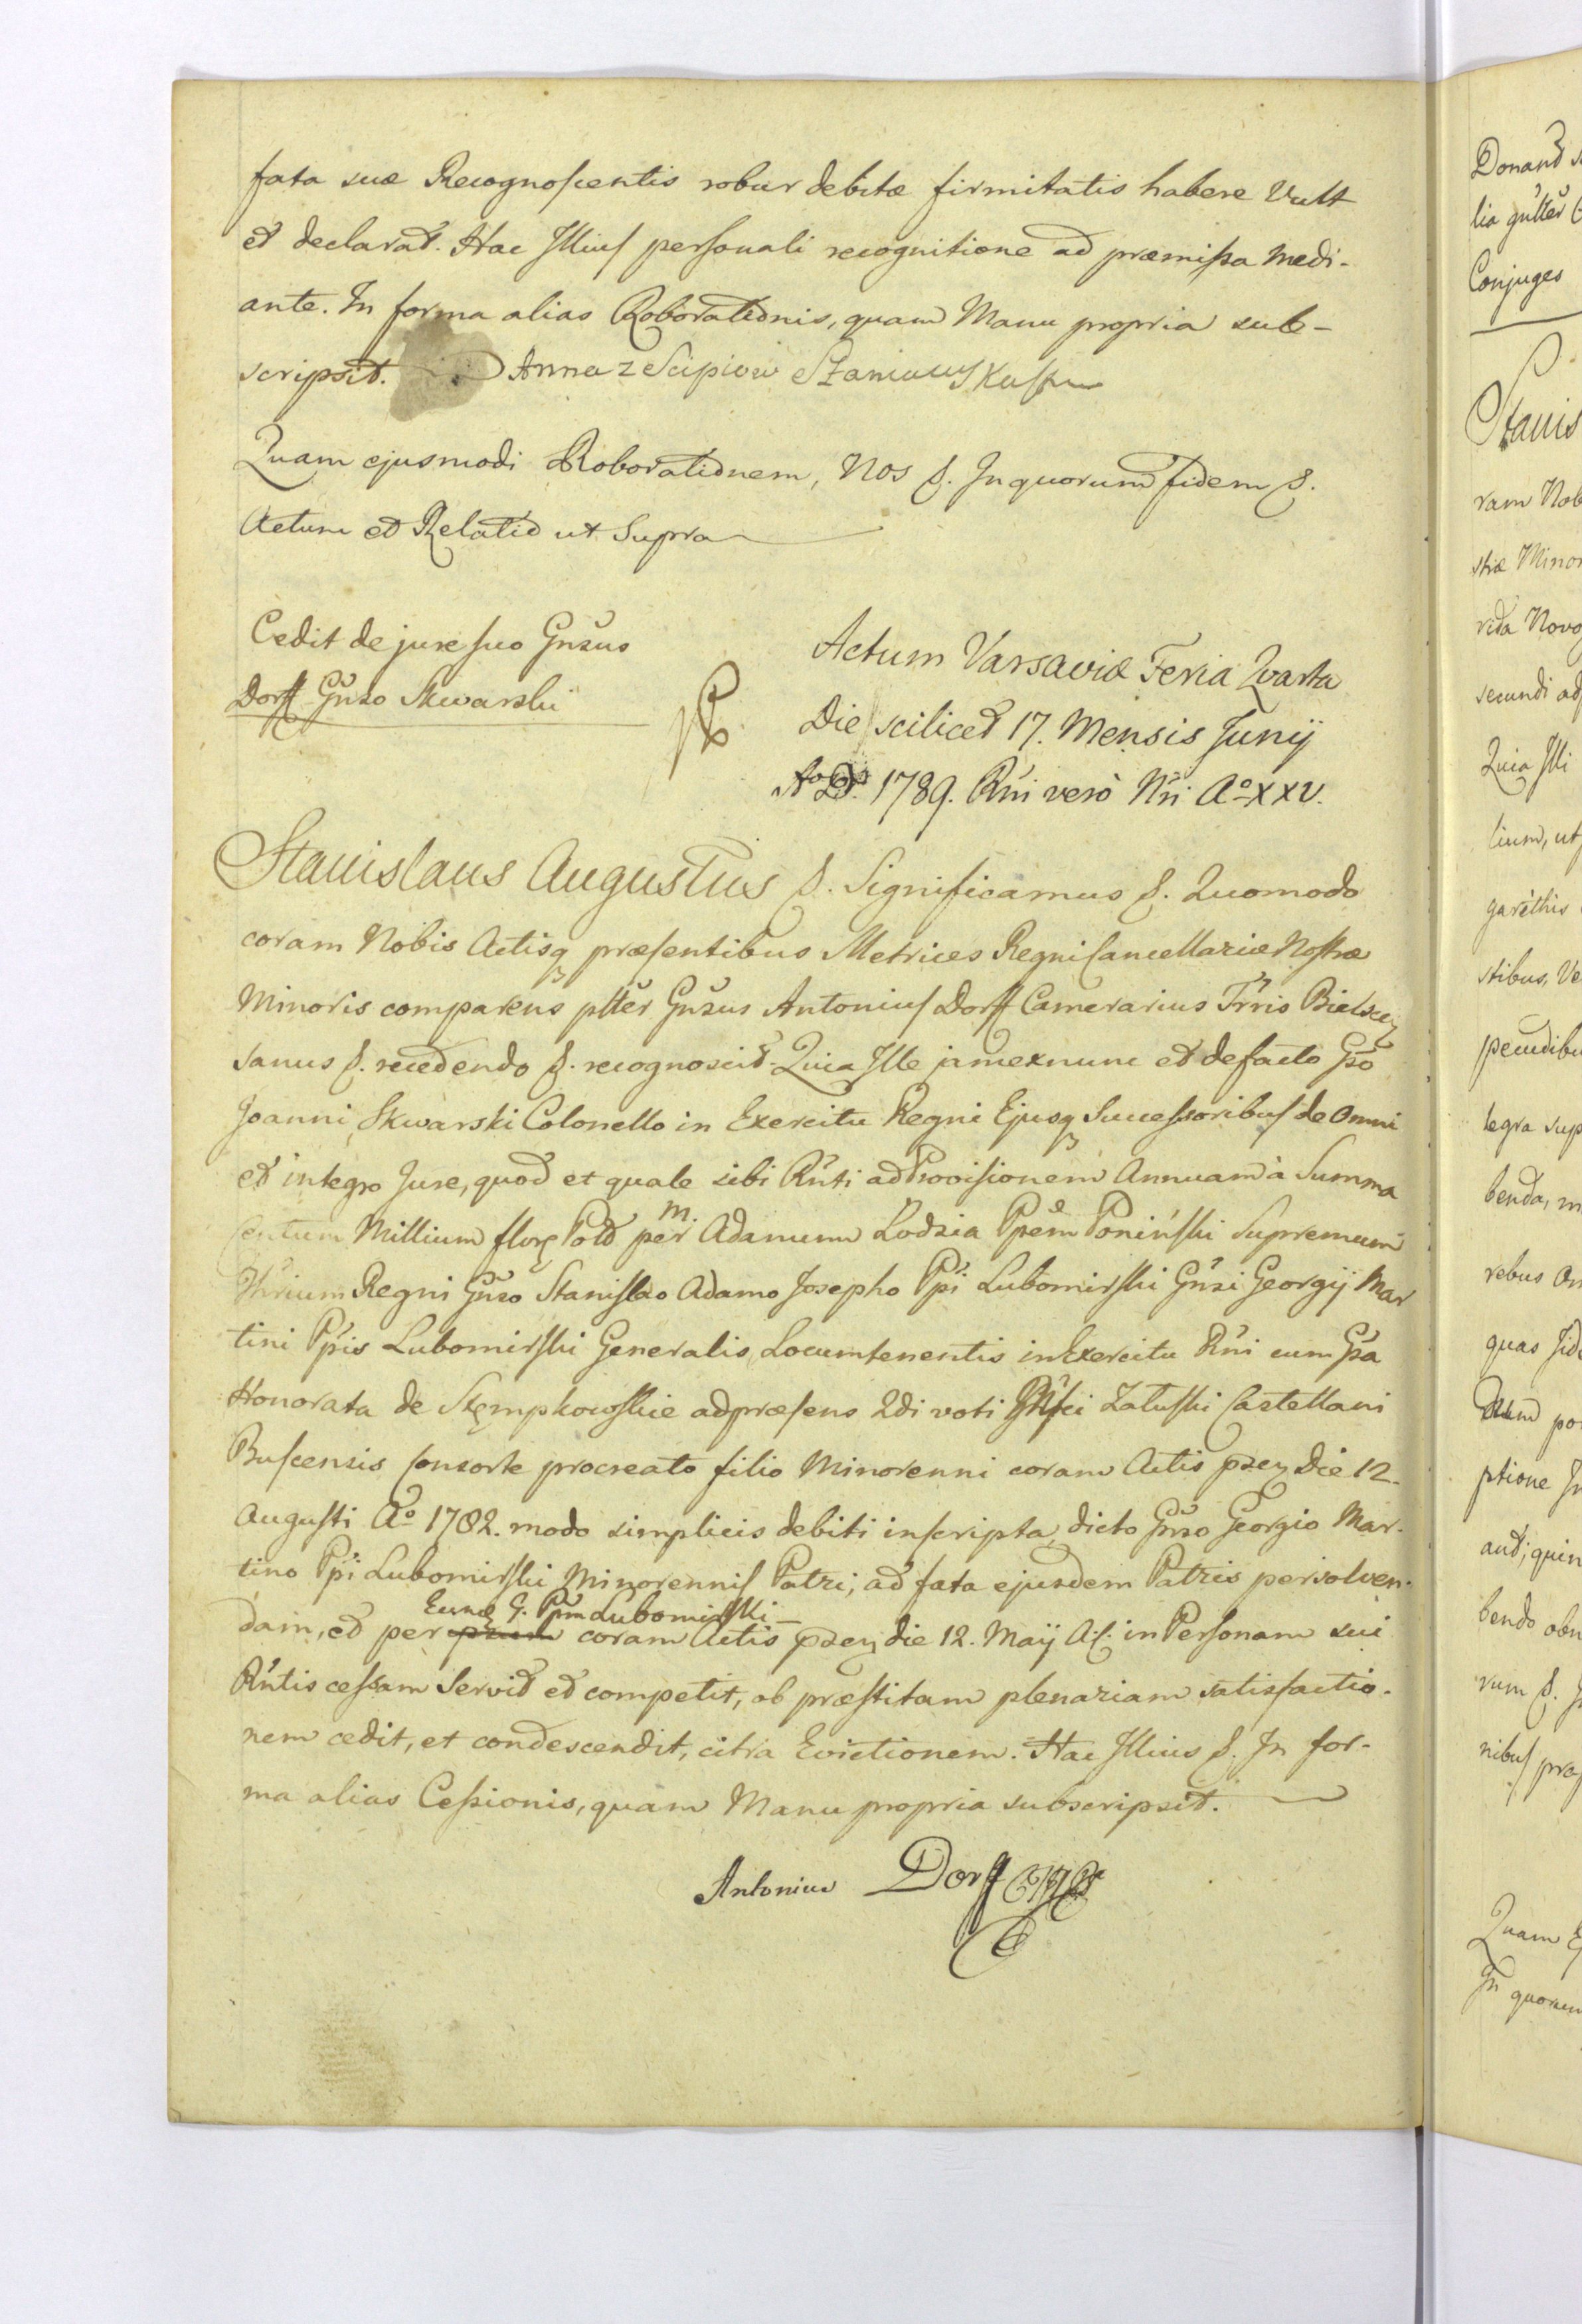 fata suæ Recognoscentis robur debitæ firmitatis habere Vult
et declarat. Hac Illius personali recognitione ad præmissa Medi-
ante. In forma alias Roborationis, quam Manu propria sub-
scripsit. Anna z Scipiow
Quam ejusmodi Roborationem, Nos &. In quorum fidem &.
Actum et Relatio ut Supra
Cedit de jure suo Gnsus
Dorff Gnso Skwarski
Actum Varsaviæ Feria Qvarta
Die scilicet 17. Mensis Junij
1789. Rni verò Nri Aº XXV.
Stanislaus Augustus &. Significamus &. Quomodo
coram Nobis Actisq præsentibus Metrices Regni Cancellariæ Nostræ
Minoris comparens plter Gnsus Antonius Dorff Camerarius Trris Bielscen
sanus &. recedendo &. recognoscit. Quia Ille jam exnunc et de facto Gso
Joanni Skwarski Colonello in Exercitu Regni Ejusq Successoribus de Omni
et integro Jure, quod et quale sibi Rnti ad Provisionem Annuam à Summa
Centum Millium flor Pold per M. Adamum Lodzia Ppem Poniński Supremum
Thrium Regni Gnso Stanislao Adamo Josepho Ppi Lubomirski Gnsi Georgij Mar
tini Ppis Lubomirski Generalis Locumtenentis in Exercitu Rni cum Gsa
Honorata de Stempkowskie ad præsens 2di voti Załuski Castellani
Buscensis Consorte procreato filio Minorenni coram Actis pzen Die 12.
Augusti Aº 1782. modo simplicis debiti inscripta, dicto Gnso Georgio Mar-
tino Ppi Lubomirski Minorennis Patri, ad fata ejusdem Patris persolven-
Eund G. Ppm Lubomirski
dam, et per coram Actis pzen die 12. Maij A. C. in Personam sui
Rntis cessam Servit et competit, ob præstitam plenariam satisfactio-
nem cedit, et condescendit, citra Evictionem. Hac Illius &. In for-
ma alias Cessionis, quam Manu propria subscripsit.
Antonius Dorff
Donand
Conjuges
Stanis
ram Nob
striæ Minor
rida Novo
secundi ad
Quia Illi
lium, ut
stibus, Ve
tegra sup
benda, m
rebus On
quas fid
ptione In
aut, quin
rum &.
nibus prop
Quam E
In quorum